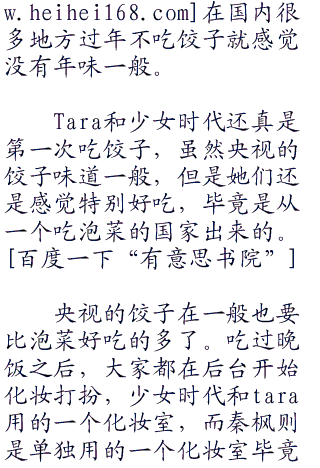 w.heihei168.com]在国内很
多地方过年不吃饺子就感觉
没有年味一般。
Tara和少女时代还真是
第一次吃饺子，虽然央视的
饺子味道一般，但是她们还
是感觉特别好吃，毕竟是从
一个吃泡菜的国家出来的。
[百度一下“有意思书院”]
央视的饺子在一般也要
比泡菜好吃的多了。吃过晚
饭之后，大家都在后台开始
化妆打扮，少女时代和tara
用的一个化妆室，而秦枫则
是单独用的一个化妆室毕竟